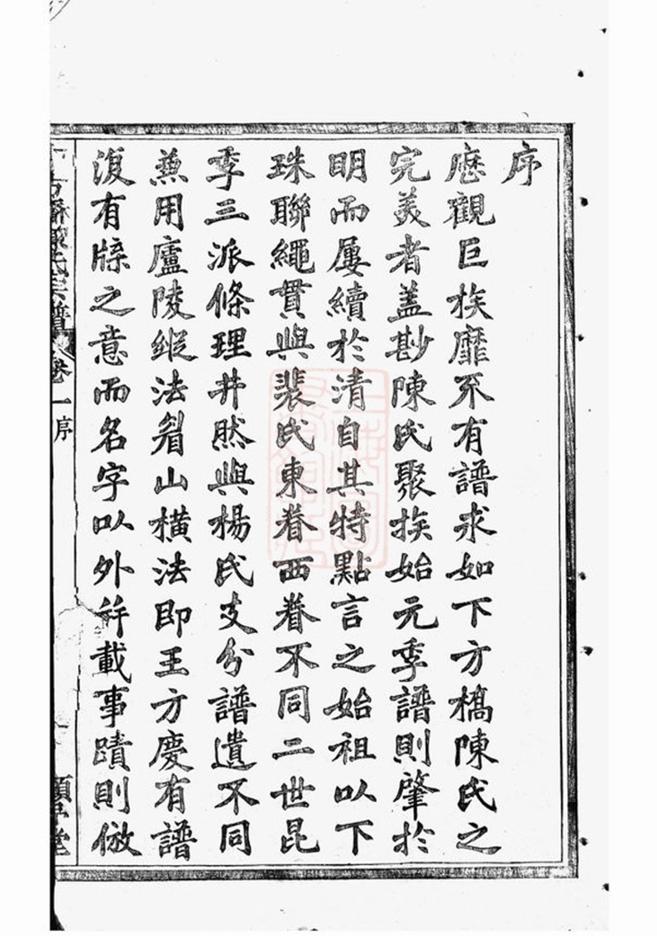 序
歷觀巨族靡不有譜求如下方橋陳氏之
完美者蓋尠陳氏聚族始元季譜則肇於
明而屢續於清自其特點言之始祖以下
珠聯繩貫與裴氏東眷西眷不同二世昆
季三派條理井然與楊氏支分譜遺不同
兼用廬陵縱法眉山橫法即王方慶有譜
復有牒之意而名字以外并載事蹟則倣
方橋陳氏宗譜 卷一 序
堂